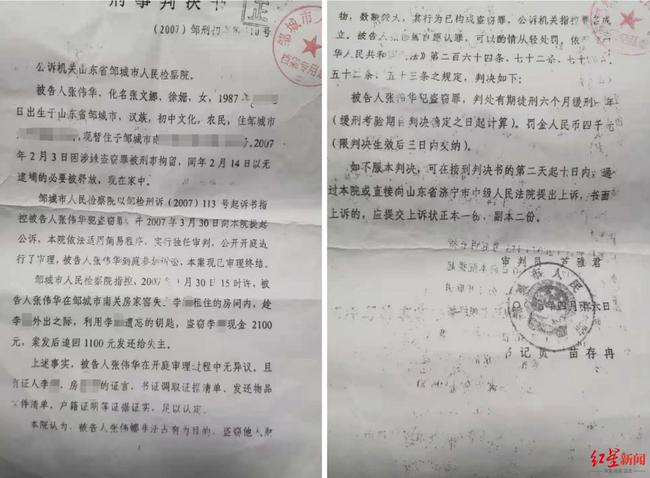 刑事判决书
正
(2007)邹刑初
公诉机关山东省邹城市人民检察院。
被告人张伟华，化名张文娜，徐娜，女，1987
日出生于山东省邹城市，汉族，初中文化，农民，住邹城市
，现暂住于邹城市南 ，2007
年2月3日因涉嫌盗窃罪被刑事拘留，同年2月14日以无
逮捕的必要被释放，现在家中。
邹城市人民检察院以邹检刑诉(2007)113号起诉书指
控被告人张伟华犯盗窃罪 2007年3月30日向本院提起
公诉，本院依法适用简易程序，实行独任审判，公开开庭进
行了审理，被告人张伟华到庭参加诉讼，本案现已审理终结。
邹城市人民检察院指控，2007 月30日15时许，被
告人张伟华在邹城市南关房家窑失、李 租住的房间内，趁
李 外出之际，利用李 遗忘的钥匙，盗窃李 现金2100
元，案发后追回1100元发还给失主。
上述事实，被告人张伟华在开庭审理过程中无异议，且
有证人李 、房 的证言，书证调取证据清单、发还物品
文件清单、户籍证明等证据证实，足以认定。
本院认为，被告人张伟 非法占有为目的，盗窃他人财
物，数额较大，其行为已构成盗窃罪，公诉机关指控罪名成
立。被告人张 自愿认罪，可以酌情从轻处罚，依
华人民共和 法》第二百六十四条、七十二条、七十
五十二条、五十三条之规定，判决如下：
被告人张伟华犯盗窃罪，判处有期徒刑六个月缓刑 年
(缓刑考验期自判决确定之日起计算)。罚金人民币四千元
(限判决生效后三日内交纳)。
如不服本判决，可在接到判决书的第二天起十日内，通
过本院或直接向山东省济宁市中级人民法院提出上诉，书面
上诉的，应提交上诉状正本一份，副本二份。
审判员 芦雅君
四月 六日
书记员 苗存冉
红星新闻